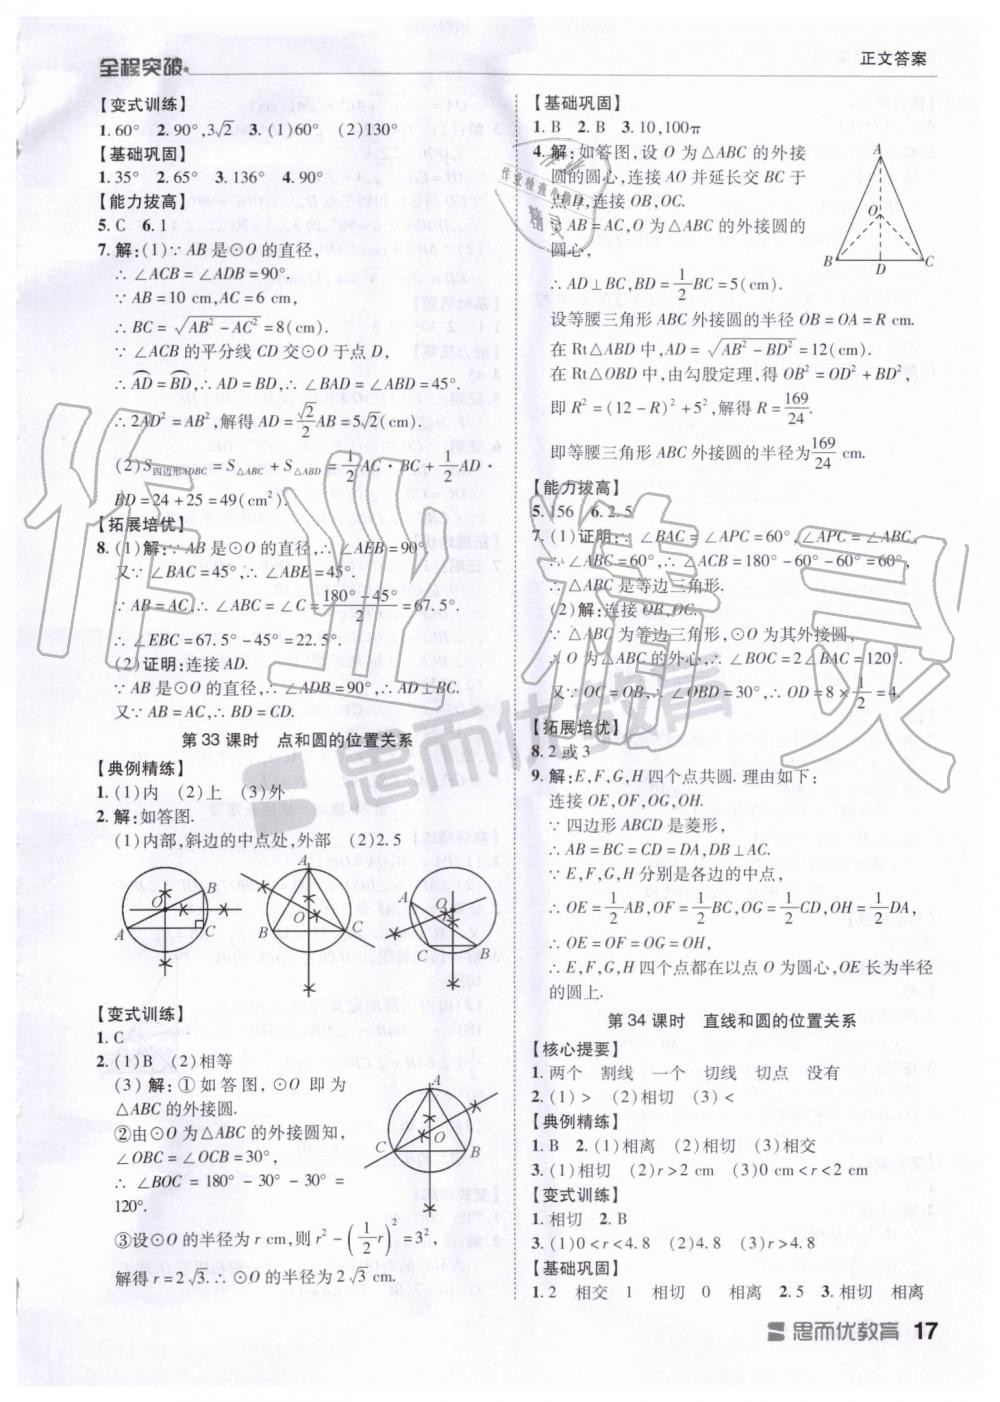 全程突破
正文答案
【变式训练】
1.60° 2.90°,3√2 3.(1)60° (2)130°
【基础巩固】
1.35° 2.65° 3.136° 4.90°
【能力拔高】
5.C 6.1
7.解:(1)∵AB是⊙O的直径,
∴∠ACB=∠ADB=90°.
∵AB=10 cm,AC=6 cm,
∴BC=√(AB²-AC²)=8(cm).
∵∠ACB的平分线CD交⊙O于点D,
∴AD=BD,∴AD=BD,∴∠BAD=∠ABD=45°.
∴2AD²=AB²,解得AD=√2/2 AB=5√2(cm).
(2)S四边形ADBC=S△ABC+S△ABD=1/2AC·BC+1/2AD·
BD=24+25=49(cm²).
【拓展培优】
8.(1)解:∵AB是⊙O的直径,∴∠AEB=90°.
又∵∠BAC=45°,∴∠ABE=45°.
∵AB=AC,∴∠ABC=∠C=(180°-45°)/2=67.5°.
∴∠EBC=67.5°-45°=22.5°.
(2)证明:连接AD.
∵AB是⊙O的直径,∴∠ADB=90°,∴AD⊥BC.
又∵AB=AC,∴BD=CD.
第33课时 点和圆的位置关系
【典例精练】
1.(1)内 (2)上 (3)外
2.解:如答图.
(1)内部,斜边的中点处,外部 (2)2.5
A B C O
A B C O
A B C O
【变式训练】
1.C
2.(1)B (2)相等
(3)解:①如答图,⊙O即为
△ABC的外接圆.
②由⊙O为△ABC的外接圆知,
∠OBC=∠OCB=30°,
∴∠BOC=180°-30°-30°=
120°.
A C B O
③设⊙O的半径为r cm,则r²-(1/2 r)²=3²,
解得r=2√3.∴⊙O的半径为2√3 cm.
【基础巩固】
1.B 2.B 3.10,100π
4.解:如答图,设O为△ABC的外接
圆的圆心,连接AO并延长交BC于
点D,连接OB,OC.
∵AB=AC,O为△ABC的外接圆的
圆心,
A O B D C
∴AD⊥BC,BD=1/2BC=5(cm).
设等腰三角形ABC外接圆的半径OB=OA=R cm.
在Rt△ABD中,AD=√(AB²-BD²)=12(cm).
在Rt△OBD中,由勾股定理,得OB²=OD²+BD²,
即R²=(12-R)²+5²,解得R=169/24.
即等腰三角形ABC外接圆的半径为169/24 cm.
【能力拔高】
5.156 6.2.5
7.(1)证明:∵∠BAC=∠APC=60°,∠APC=∠ABC,
∴∠ABC=60°,∴∠ACB=180°-60°-60°=60°,
∴△ABC是等边三角形.
(2)解:连接OB,OC.
∵△ABC为等边三角形,⊙O为其外接圆,
∴O为△ABC的外心,∴∠BOC=2∠BAC=120°.
又∵OC=OB,∴∠OBD=30°,∴OD=8×1/2=4.
【拓展培优】
8.2或3
9.解:E,F,G,H四个点共圆.理由如下:
连接OE,OF,OG,OH,
∵四边形ABCD是菱形,
∴AB=BC=CD=DA,DB⊥AC.
∵E,F,G,H分别是各边的中点,
∴OE=1/2AB,OF=1/2BC,OG=1/2CD,OH=1/2DA,
∴OE=OF=OG=OH,
∴E,F,G,H四个点都在以点O为圆心,OE长为半径
的圆上.
第34课时 直线和圆的位置关系
【核心提要】
1.两个 割线 一个 切线 切点 没有
2.(1)> (2)相切 (3)<
【典例精练】
1.B 2.(1)相离 (2)相切 (3)相交
3.(1)相切 (2)r>2 cm (3)0 cm<r<2 cm
【变式训练】
1.相切 2.B
3.(1)0<r<4.8 (2)4.8 (3)r>4.8
【基础巩固】
1.2 相交 1 相切 0 相离 2.5 3.相切 相离
思而优教育 17
作业精灵
思而优教育
作业检查小精灵